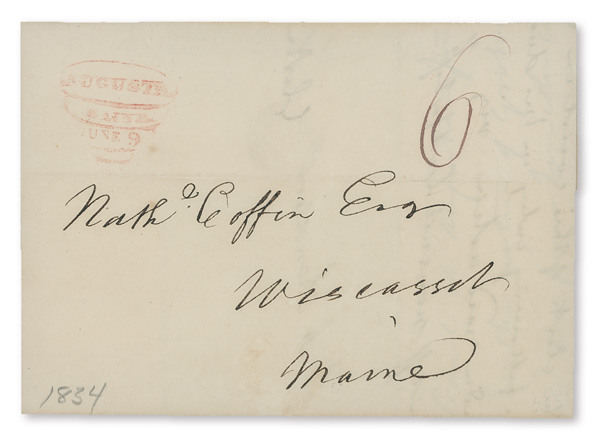 AUGUSTA
6
Nath.l Coffin Esq
Wiscasset
Maine
1834